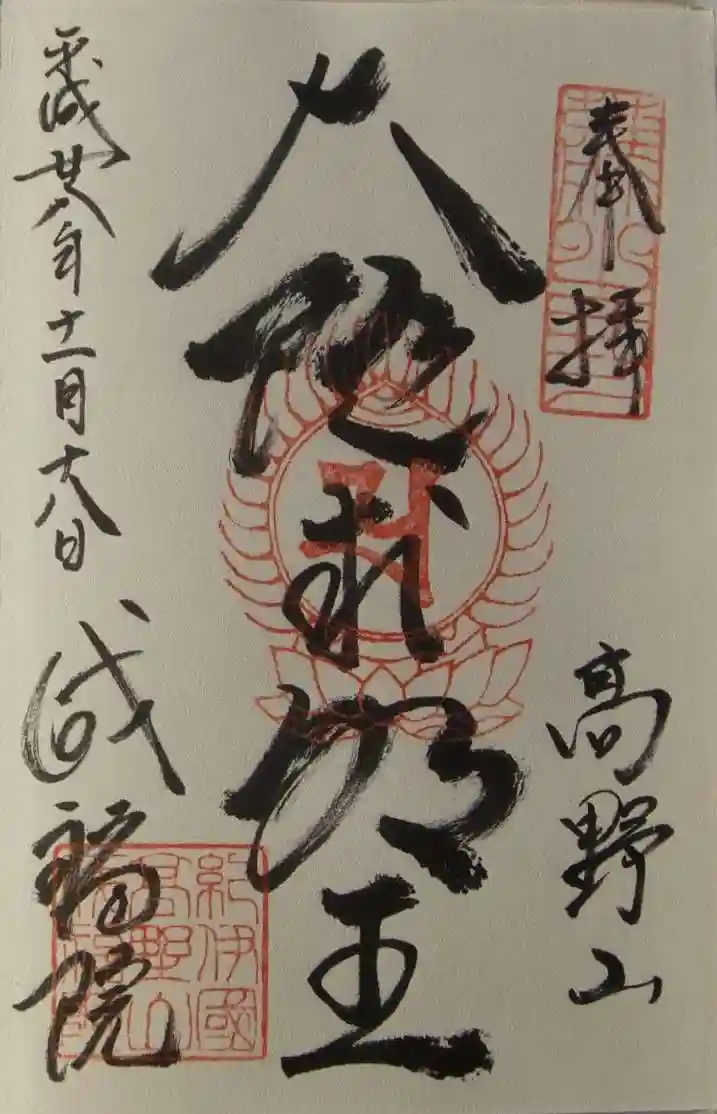 奉拝
高野山
大随求明王
平成廿八年十一月十八日
成福院
紀伊國
高野山
成福院